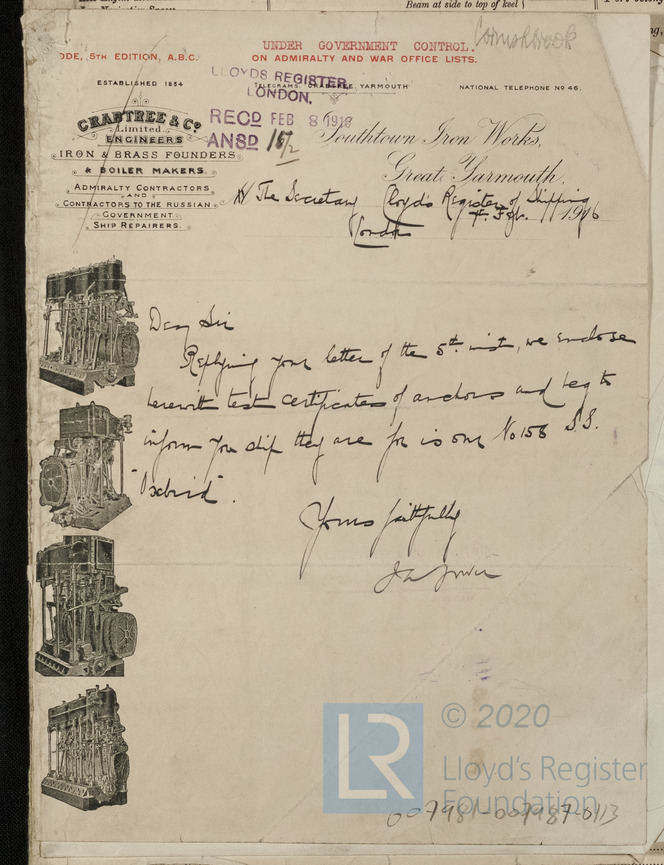 Beam at side to top of keel
Cornishbrook
UNDER GOVERNMENT CONTROL.
ODE, 5TH EDITION, A.B.C.
ON ADMIRALTY AND WAR OFFICE LISTS.
ESTABLISHED 1854
TELEGRAMS, CRABTREE, YARMOUTH
NATIONAL TELEPHONE No 46.
LLOYDS REGISTER,
LONDON.
RECD FEB 8 1916
ANSD 15/2
CRABTREE & Co
Limited.
ENGINEERS
IRON & BRASS FOUNDERS
& BOILER MAKERS.
ADMIRALTY CONTRACTORS
AND
CONTRACTORS TO THE RUSSIAN
GOVERNMENT.
SHIP REPAIRERS.
Southtown Iron Works,
Great Yarmouth,
The Secretary Lloyds Register of Shipping
7. Feb. 1916
London
Dear Sir
Replying your letter of the 5th inst, we enclose
herewith test certificates of anchors and beg to
inform you ship they are for is our No 158 S.S.
"Oxbird".
Yours faithfully
© 2020
LR
Lloyd's Register
Foundation
007981-007987-0113